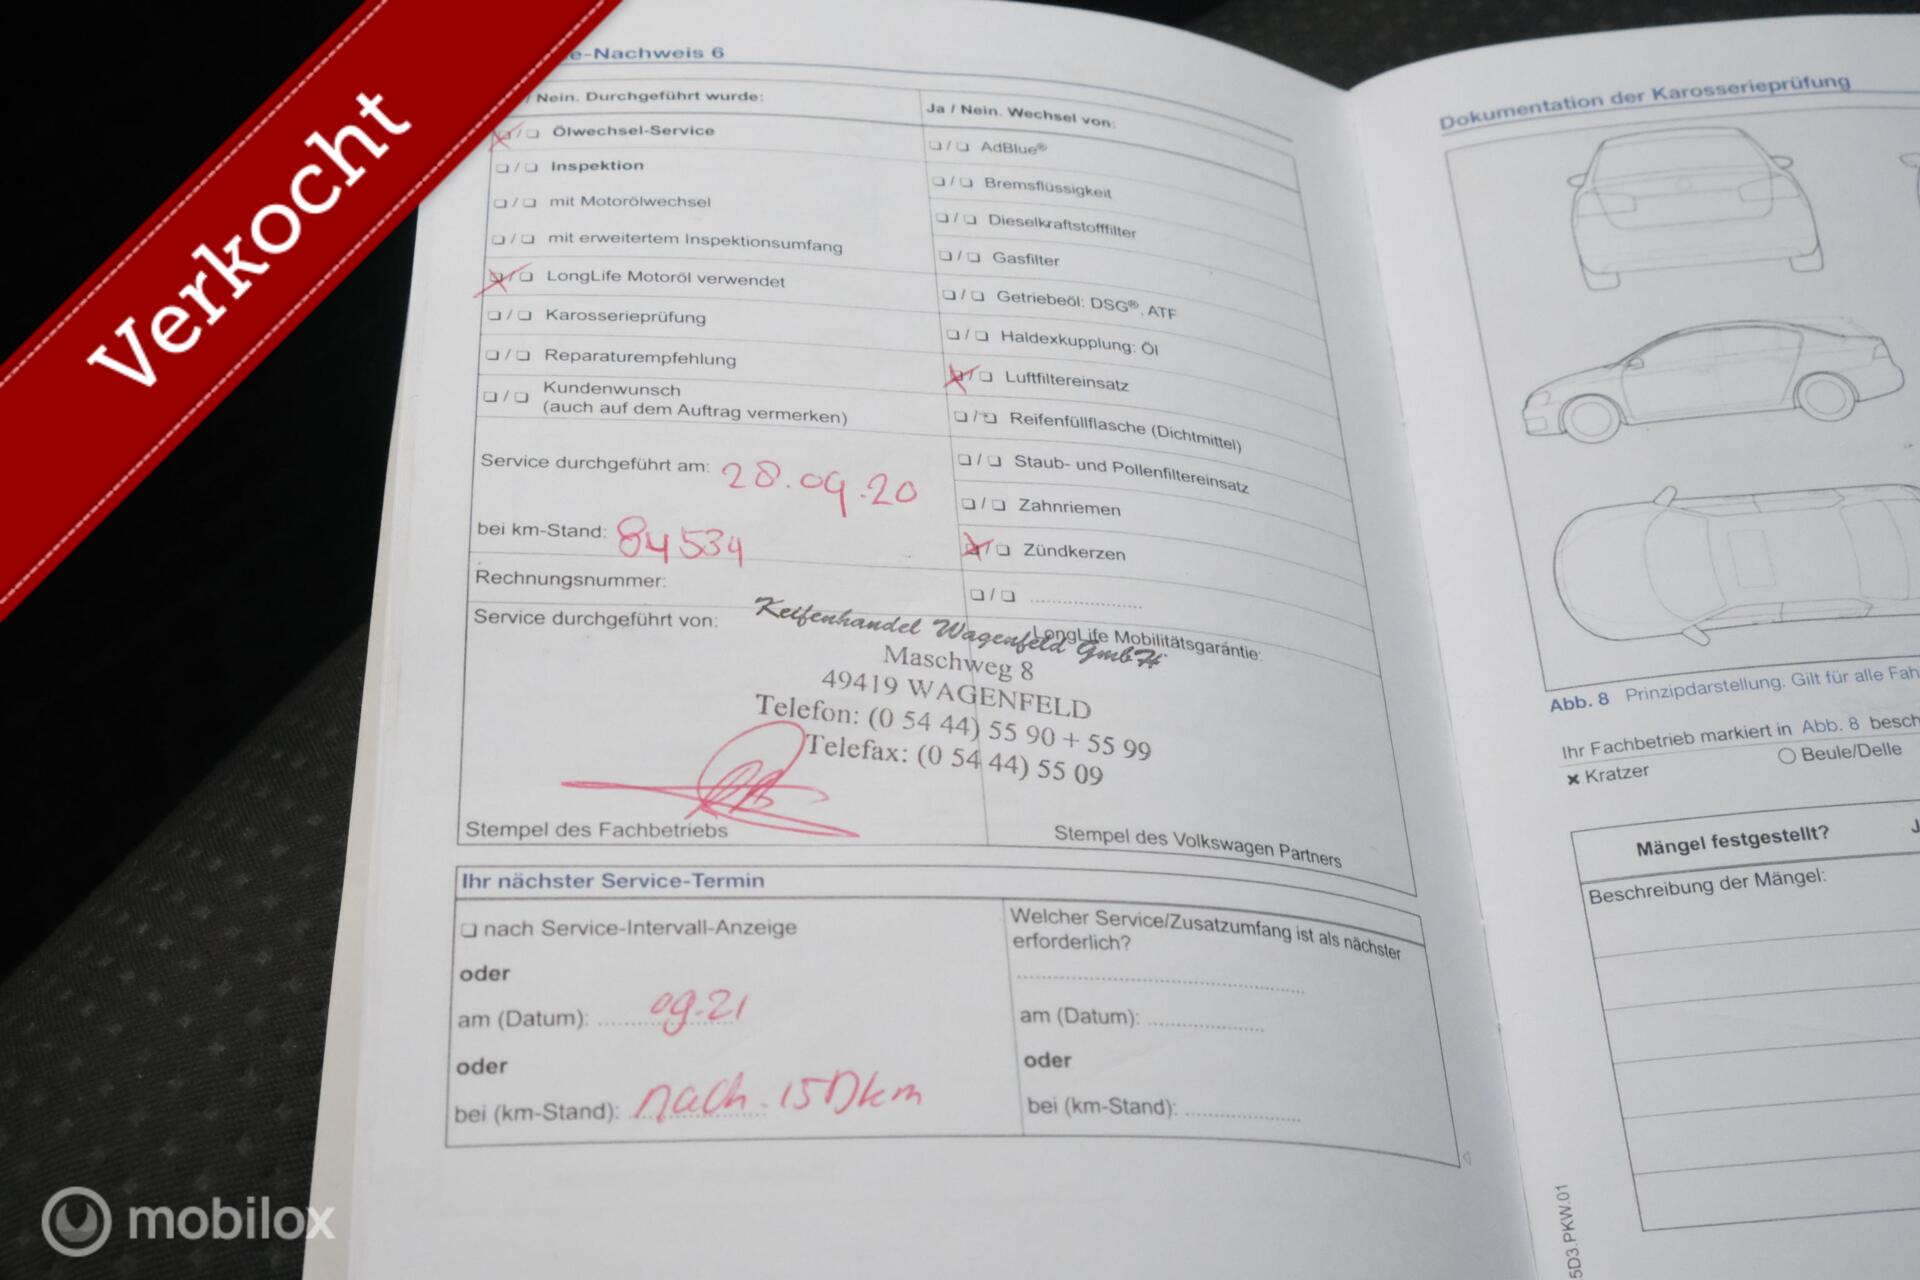 Verkocht
e-Nachweis 6
/ Nein. Durchgeführt wurde:
Ölwechsel-Service
Inspektion
mit Motorölwechsel
mit erweitertem Inspektionsumfang
LongLife Motoröl verwendet
Karosserieprüfung
Reparaturempfehlung
Kundenwunsch
(auch auf dem Auftrag vermerken)
Ja / Nein. Wechsel von:
AdBlue®
Bremsflüssigkeit
Dieselkraftstofffilter
Gasfilter
Getriebeöl: DSG®, ATF
Haldexkupplung: Öl
Luftfiltereinsatz
Reifenfüllflasche (Dichtmittel)
Staub- und Pollenfiltereinsatz
Zahnriemen
Zündkerzen
Service durchgeführt am: 28.09.20
bei km-Stand: 84534
Rechnungsnummer:
Service durchgeführt von:
LongLife Mobilitätsgarantie:
Reifenhandel Wagenfeld GmbH
Maschweg 8
49419 WAGENFELD
Telefon: (0 54 44) 55 90 + 55 99
Telefax: (0 54 44) 55 09
Stempel des Fachbetriebs
Stempel des Volkswagen Partners
Ihr nächster Service-Termin
nach Service-Intervall-Anzeige
oder
am (Datum): 09.21
oder
bei (km-Stand): nach. 15Dkm
Welcher Service/Zusatzumfang ist als nächster
erforderlich?
am (Datum):
oder
bei (km-Stand):
Dokumentation der Karosserieprüfung
Abb. 8 Prinzipdarstellung. Gilt für alle Fah
Ihr Fachbetrieb markiert in Abb. 8 besch
× Kratzer
Beule/Delle
Mängel festgestellt? J
Beschreibung der Mängel:
5D3.PKW.01
mobilox